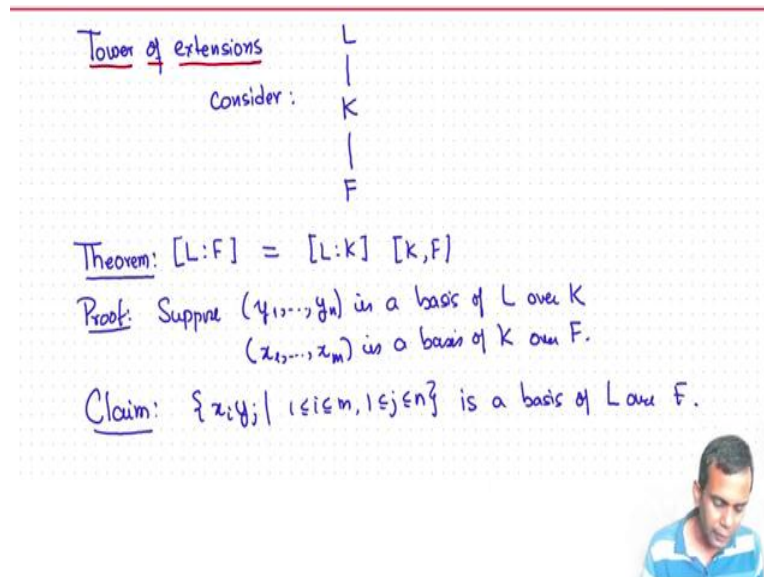 Tower of extensions
L
|
Consider: K
|
F
Theorem: [L:F] = [L:K] [K,F]
Proof: Suppose (y₁,...,yₙ) is a basis of L over K
(x₁,...,xₘ) is a basis of K over F.
Claim: {xᵢyⱼ | 1≤i≤m, 1≤j≤n} is a basis of L over F.